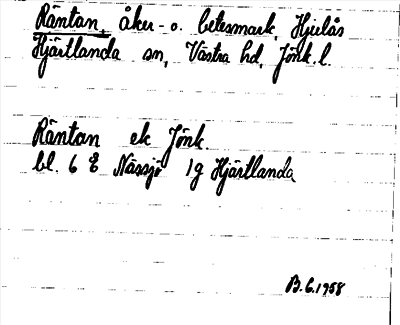 Räntan, åker- o. betesmark, Hjulås
Hjärtlanda sn, Västra hd, Jönk. l.
Räntan ek Jönk.
bl. 6 E Nässjö 1g Hjärtlanda
B.G.1958